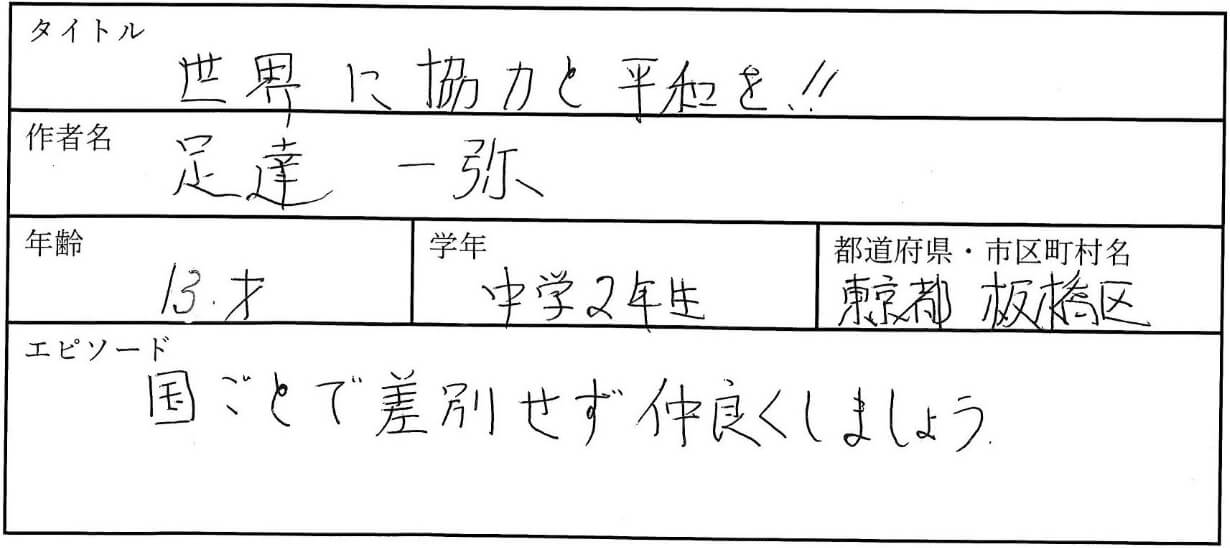 タイトル
世界に協力と平和を!!
作者名
足達 一弥
年齢 学年 都道府県・市区町村名
13.才 中学2年生 東京都 板橋区
エピソード
国ごとで差別せず仲良くしましょう.